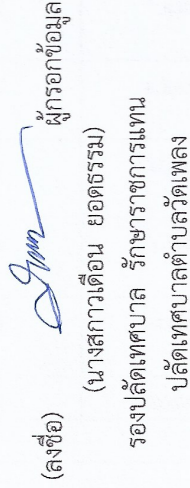 (ลงชื่อ) ผู้กรอกข้อมูล
(นางสกาวเดือน ยอดธรรม)
รองปลัดเทศบาล รักษาราชการแทน
ปลัดเทศบาลตำบลวัดเพลง